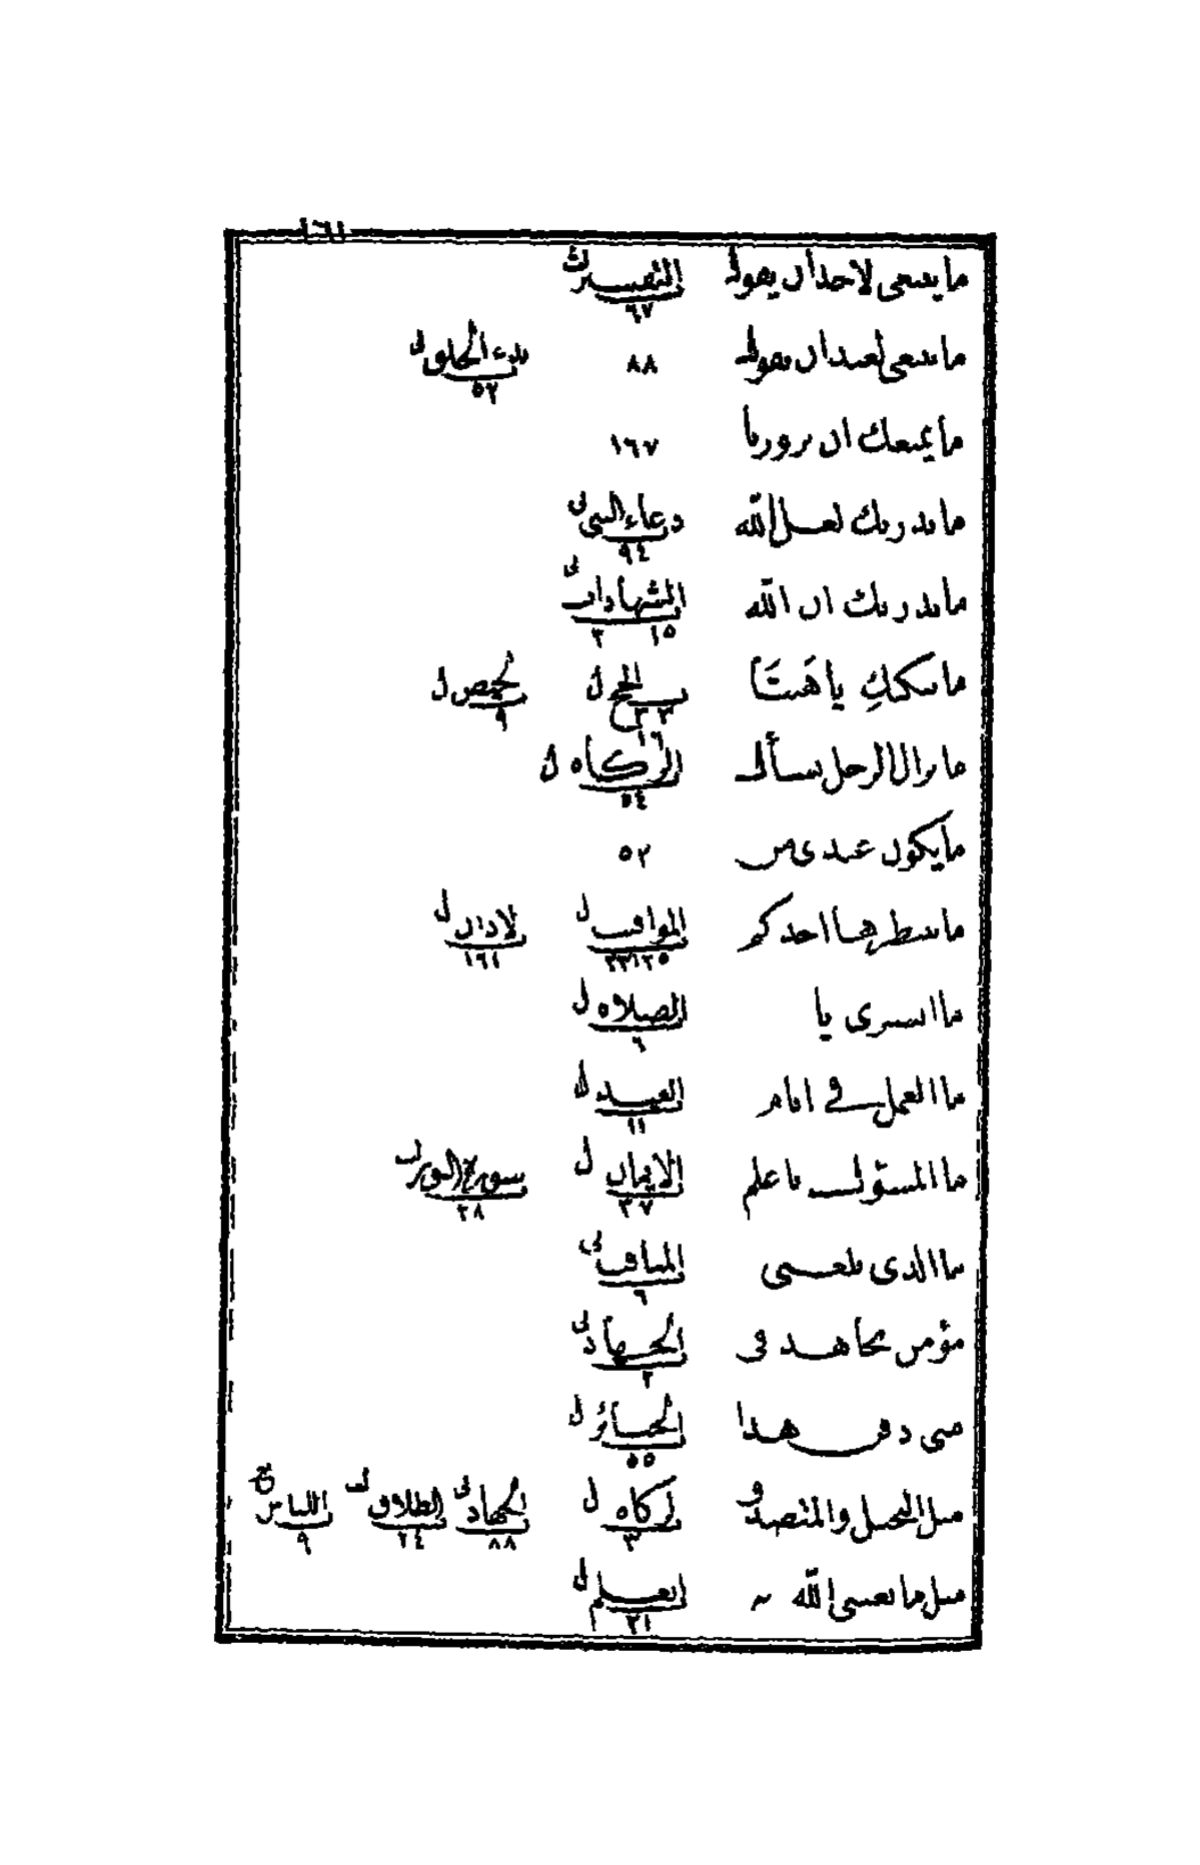 ١٦١
ما ينبغي لاحد ان يقول التفسير ٦٧
ما ينبغي لعبد ان يقول ٨٨ بدء الخلق ل ٥٢
ما يمنعك ان تزورنا ١٦٧
ما يدريك لعل الله دعاء النبي ٩٤
ما يدريك ان الله الشهادات ١٥ ٣
ما يبكيكِ يا هَنتَا الحج ل ٣٣ الحيض ل ٩
ما يزال الرجل يسأل الزكاه ل ١٦ ٥٤
ما يكون عندي من ٥٢
ما ينتظرها احدكم المواقيت ل ٢٥ الاذان ل ١٦١
ما السرى يا الصلاه ل ٦
ما العمل في ايام العيد ١١
ما المسئول باعلم الايمان ل ٣٧ سورة ٢٨
ما الذي بلغني المناقب ٦
مؤمن مجاهد في الجهاد ٢
متى دفن هذا الجنائز ل ٥٥
مثل البخيل والمتصدق زكاه ل ٣ الجهاد ٨٨ الطلاق ٢٤ اللباس ٩
مثل ما بعثني الله العلم ل ٢١